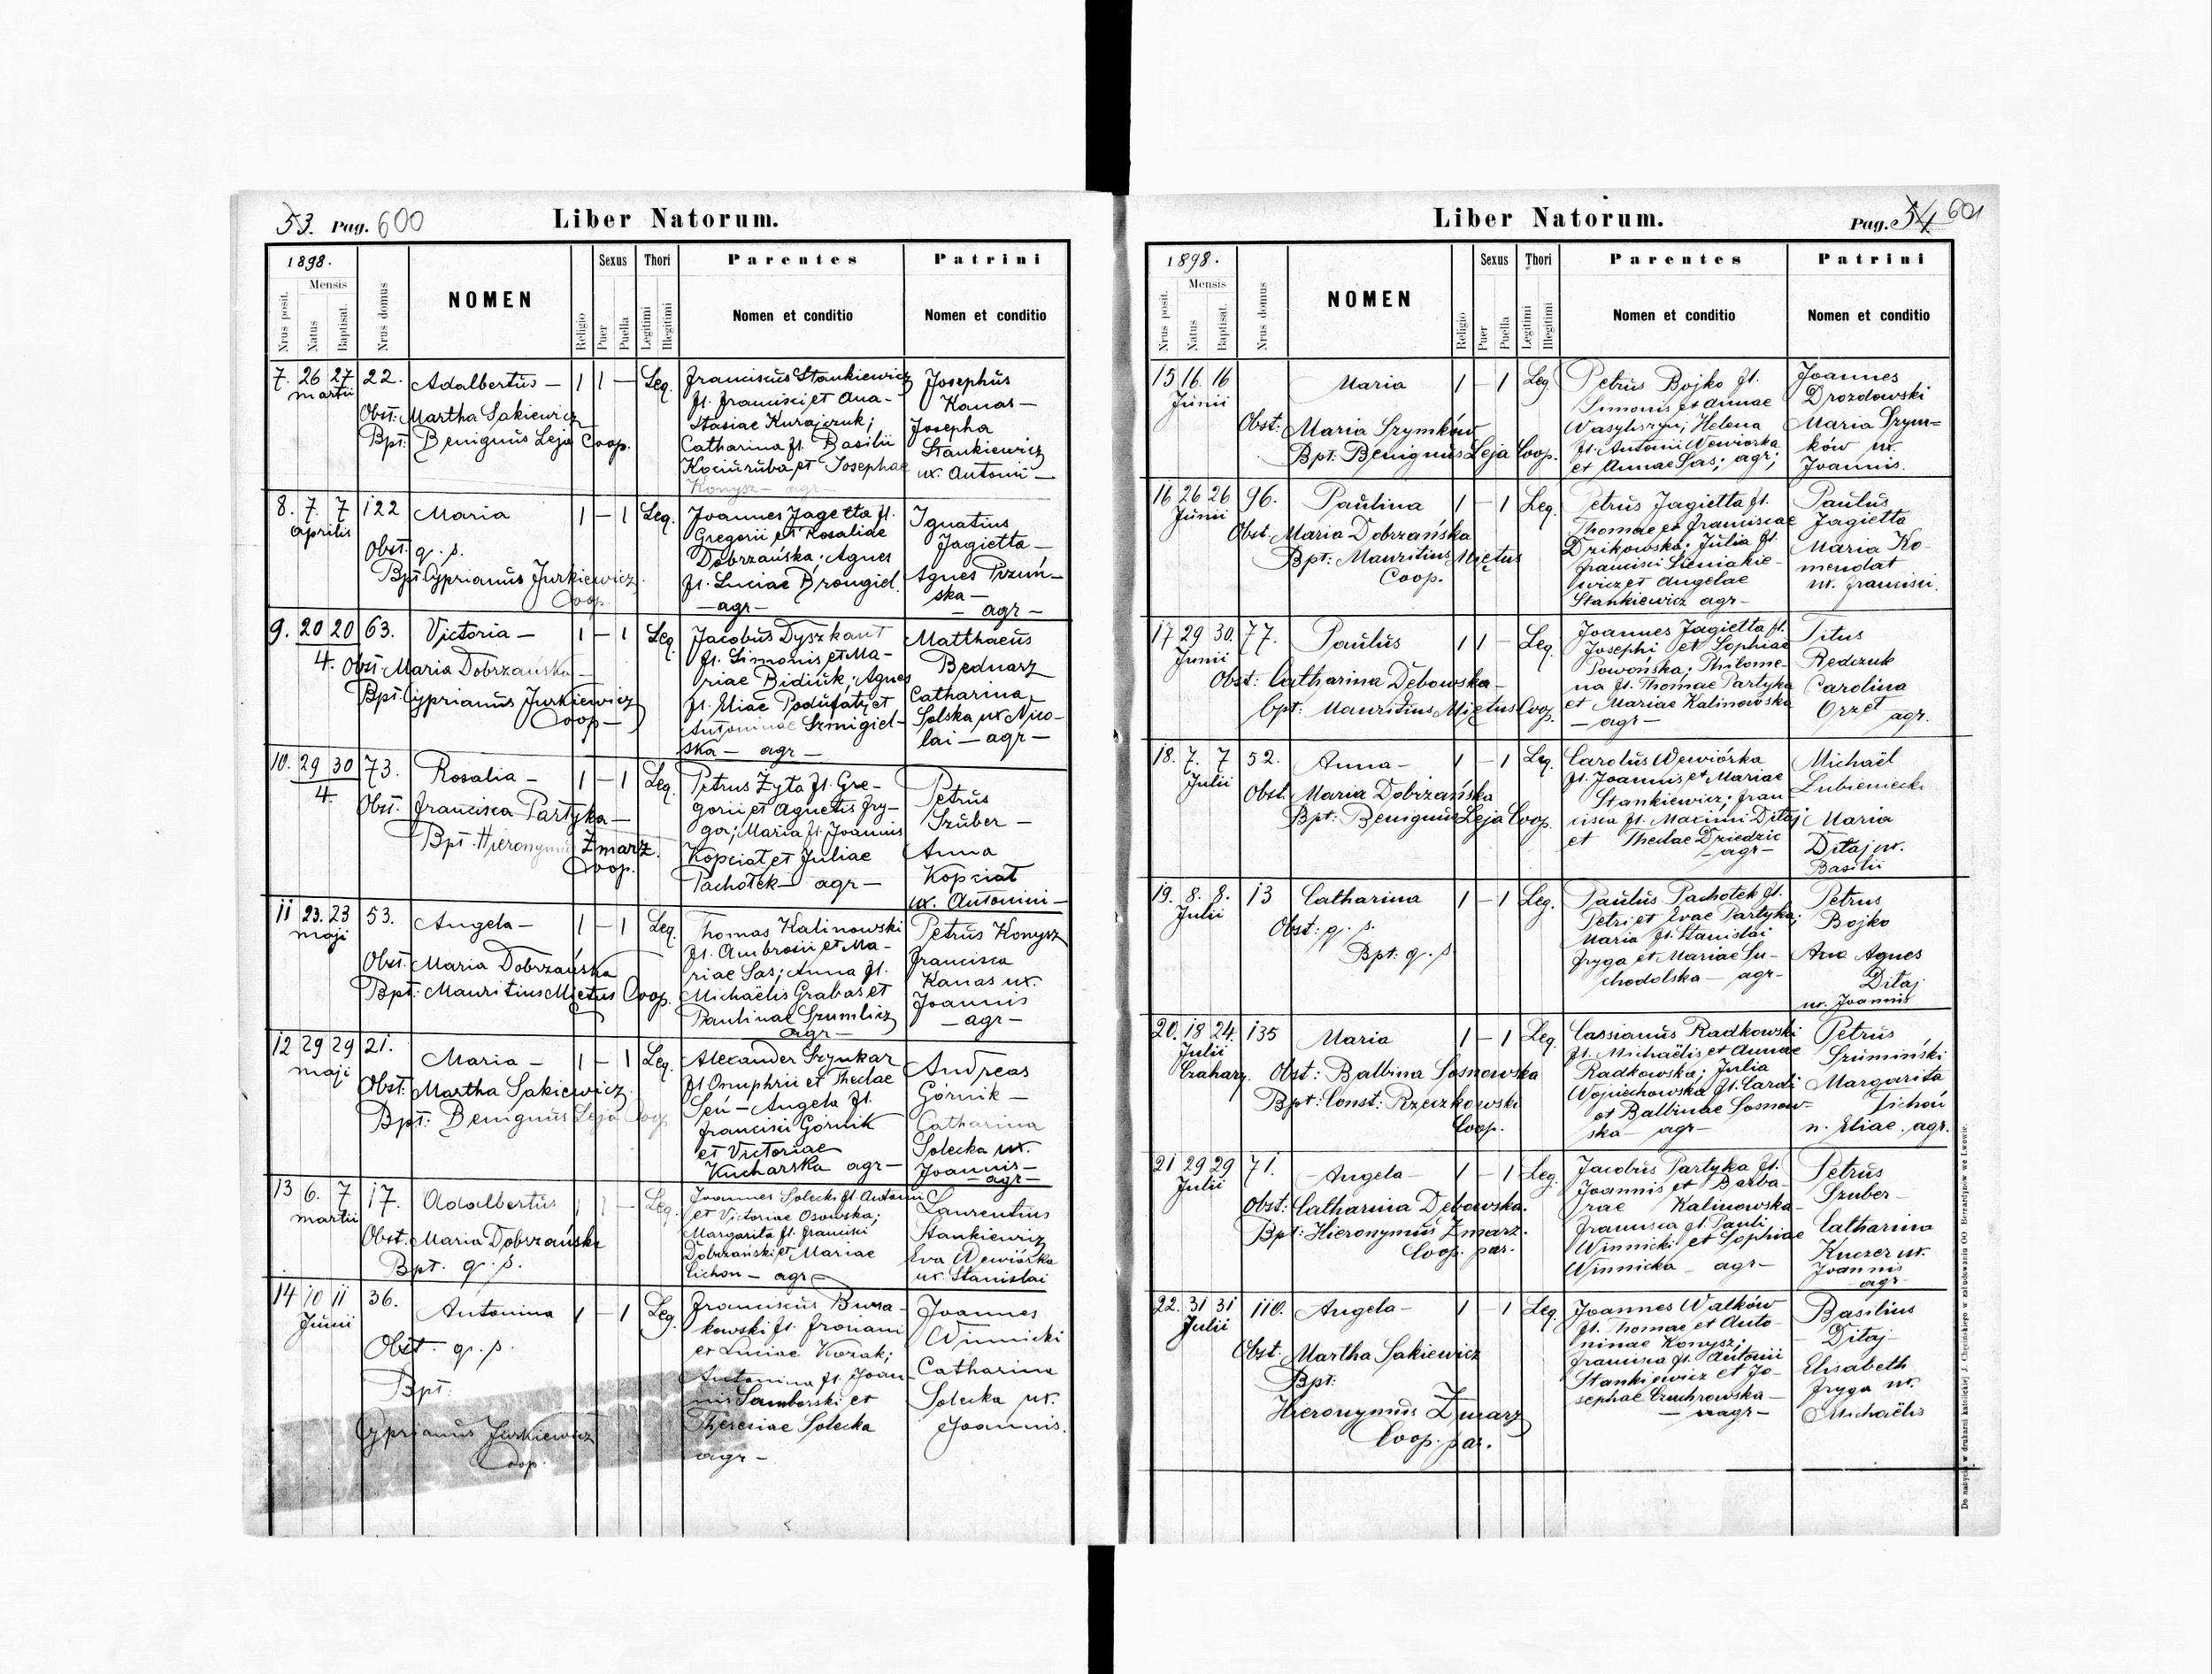 53. Pag. 600
Liber Natorum.
1898.
Mensis
Nrus posit.
Natus
Baptisat.
Nrus domus
NOMEN
Religio
Sexus
Puer
Puella
Thori
Legitimi
Illegitimi
Parentes
Nomen et conditio
Patrini
Nomen et conditio
7. 26 27 22. Adalbertus — 1 1 — Leg.
martii
Obst. Martha Sakiewicz
Bpt: Benignus Leja Coop.
Franciscus Stankiewicz
fl. Francisci et Ana-
stasiae Kurajczuk;
Catharina fl. Basilii
Kociuruba et Josephae
Konysz — agr —
Josephus
Kanas —
Josepha
Stankiewicz
ux. Antonii —
8. 7. 7 122 Maria 1 — 1 Leg.
Aprilis
Obst. q. s.
Bpt. Cyprianus Jurkiewicz
Coop
Joannes Jagełła fl.
Gregorii et Rosaliae
Dobrzańska; Agnes
fl. Luciae Brongiel.
— agr —
Ignatius
Jagiełła —
Agnes
ska —
— agr —
9. 20 20 63. Victoria — 1 — 1 Leg.
4. Obst. Maria Dobrzańska —
Bpt. Cyprianus Jurkiewicz
Coop —
Jacobus Dyszkant
fl. Simonis et Ma-
riae Bidiuk; Agnes
fl. Eliae Podufały et
Antoninae Szmigiel-
ska — agr —
Matthaeus
Bednarz
Catharina
Solska ux Nico-
lai — agr —
10. 29 30 73. Rosalia — 1 — 1 Leg.
4.
Obst. Francisca Partyka —
Bpt. Hieronymus Zmarz.
Coop.
Petrus Żyła fl. Gre-
gorii et Agnetis Fry-
ga; Maria fl. Joannis
Kopciał et Juliae
Pachołek — agr —
Petrus
Szuber —
Anna
Kopciał
ux. Antonini —
11 23. 23 53. Angela — 1 — 1 Leg.
maji
Obst. Maria Dobrzańska
Bpt: Mauritius Miętus Coop.
Thomas Kalinowski
fl. Ambrosii et Ma-
riae Sas; Anna fl.
Michaëlis Grabas et
Paulinae Szumlicz
agr —
Petrus Konysz
Francisca
Kanas ux.
Joannis
— agr —
12 29 29 21. Maria — 1 — 1 Leg.
maji
Obst. Martha Sakiewicz.
Bpt: Benignus Leja Coop
Alexander Szynkar
fl Onuphrii et Theclae
Seń — Angela fl.
Francisci Górnik
et Victoriae
Kucharska agr —
Andreas
Górnik —
Catharina
Solecka ux.
Joannis —
— agr —
13 6. 7 17. Adalbertus 1 1 — Leg.
martii
Obst. Maria Dobrzańska
Bpt. q. s.
Joannes Solecki fl. Antonii
et Victoriae Osowska;
Margarita fl. Francisci
Dobrzański et Mariae
Cichon — agr —
Laurentius
Stankiewicz
Eva Wewiórka
ux. Stanislai
14 10 11 36. Antonina 1 — 1 Leg.
Junii
Obst. q. s.
Bpt.
Cyprianus Jurkiewicz
Coop.
Franciscus
kowski fl.
et Luciae Kozak;
Antonina fl. Joan-
nis Samborski et
Theresiae Solecka
agr —
Joannes
Winnicki
Catharina
Solecka ux.
Joannis.
Liber Natorum.
Pag. 54 601
1898.
Mensis
Nrus posit.
Natus
Baptisat.
Nrus domus
NOMEN
Religio
Sexus
Puer
Puella
Thori
Legitimi
Illegitimi
Parentes
Nomen et conditio
Patrini
Nomen et conditio
15 16. 16 Maria 1 — 1 Leg.
Junii
Obst: Maria Szymków
Bpt: Benignus Leja Coop.
Petrus Bojko fl.
Simonis et Annae
Wasyliszyn; Helena
fl. Antonii Wewiórka
et Annae Sas; agr;
Joannes
Drozdowski
Maria Szym=
ków ux.
Joannis.
16 26 26 96. Paulina 1 — 1 Leg.
Junii
Obst. Maria Dobrzańska
Bpt: Mauritius Miętus
Coop.
Petrus Jagiełła fl.
Thomae et Franciscae
Dzikowska; Julia fl.
Francisci Sieniakie-
wicz et Angelae
Stankiewicz agr —
Paulus
Jagiełła
Maria Ko-
mendat
ux. Francisci.
17 29 30. 77. Paulus 1 1 — Leg.
Junii
Obst: Catharina Dębowska —
bpt: Mauritius Miętus Coop.
Joannes Jagiełła fl.
Josephi et Sophiae
Powońska; Philome-
na fl. Thomae Partyka
et Mariae Kalinowska
— agr —
Titus
Redczuk
Carolina
Orzeł
agr.
18. 7. 7 52. Anna — 1 — 1 Leg.
Julii
Obst. Maria Dobrzańska
Bpt: Benignus Leja Coop.
Carolus Wewiórka
fl. Joannis et Mariae
Stankiewicz; Fran
cisca fl. Maximi Ditaj
et Theclae Dziedzic
— agr —
Michaël
Lubieniecki
Maria
Ditaj ux.
Basilii
19. 8. 8. 13 Catharina 1 — 1 Leg.
Julii
Obst: q. s.
Bpt: q. s
Paulus Pachołek fl.
Petri et Evae Partyka;
Maria fl. Stanislai
Fryga et Mariae Su-
chodolska — agr —
Petrus
Bojko
Agnes
Ditaj
ux. Joannis
20. 18 24. 135 Maria 1 — 1 Leg.
Julii
Obst: Balbina Sosnowska
Bpt: Const: Rzeczkowski
Coop.
Cassianus Radkowski
fl. Michaëlis et Annae
Radkowska; Julia
Wojciechowska fl. Caroli
et Balbinae Sosnow-
ska — agr —
Petrus
Szumiński
Margarita
Tichoń
n. Eliae. agr.
21 29 29 71. — Angela — 1 — 1 Leg.
Julii
Obst: Catharina Dębowska.
Bpt: Hieronymus Zmarz.
Coop. par.
Jacobus Partyka fl.
Joannis et Barba-
rae Kalinowska
Francisca fl. Pauli
Winnicki et Sophiae
Winnicka agr —
Petrus
Szuber —
Catharina
Kuczer ux.
Joannis
agr —
22. 31 31 110. Angela — 1 — 1 Leg.
Julii
Obst. Martha Sakiewicz
Bpt:
Hieronymus Zmarz
Coop. par.
Joannes Walków
fl. Thomae et Anto-
ninae Konysz;
Francisca fl. Antonii
Stankiewicz et Jo-
sephae
— agr —
Basilius
Ditaj —
Elisabeth
Fryga ux.
Michaëlis
Do nabycia w drukarni katolickiej J. Chęcińskiego w zabudowaniu OO. Bernardynów we Lwowie.